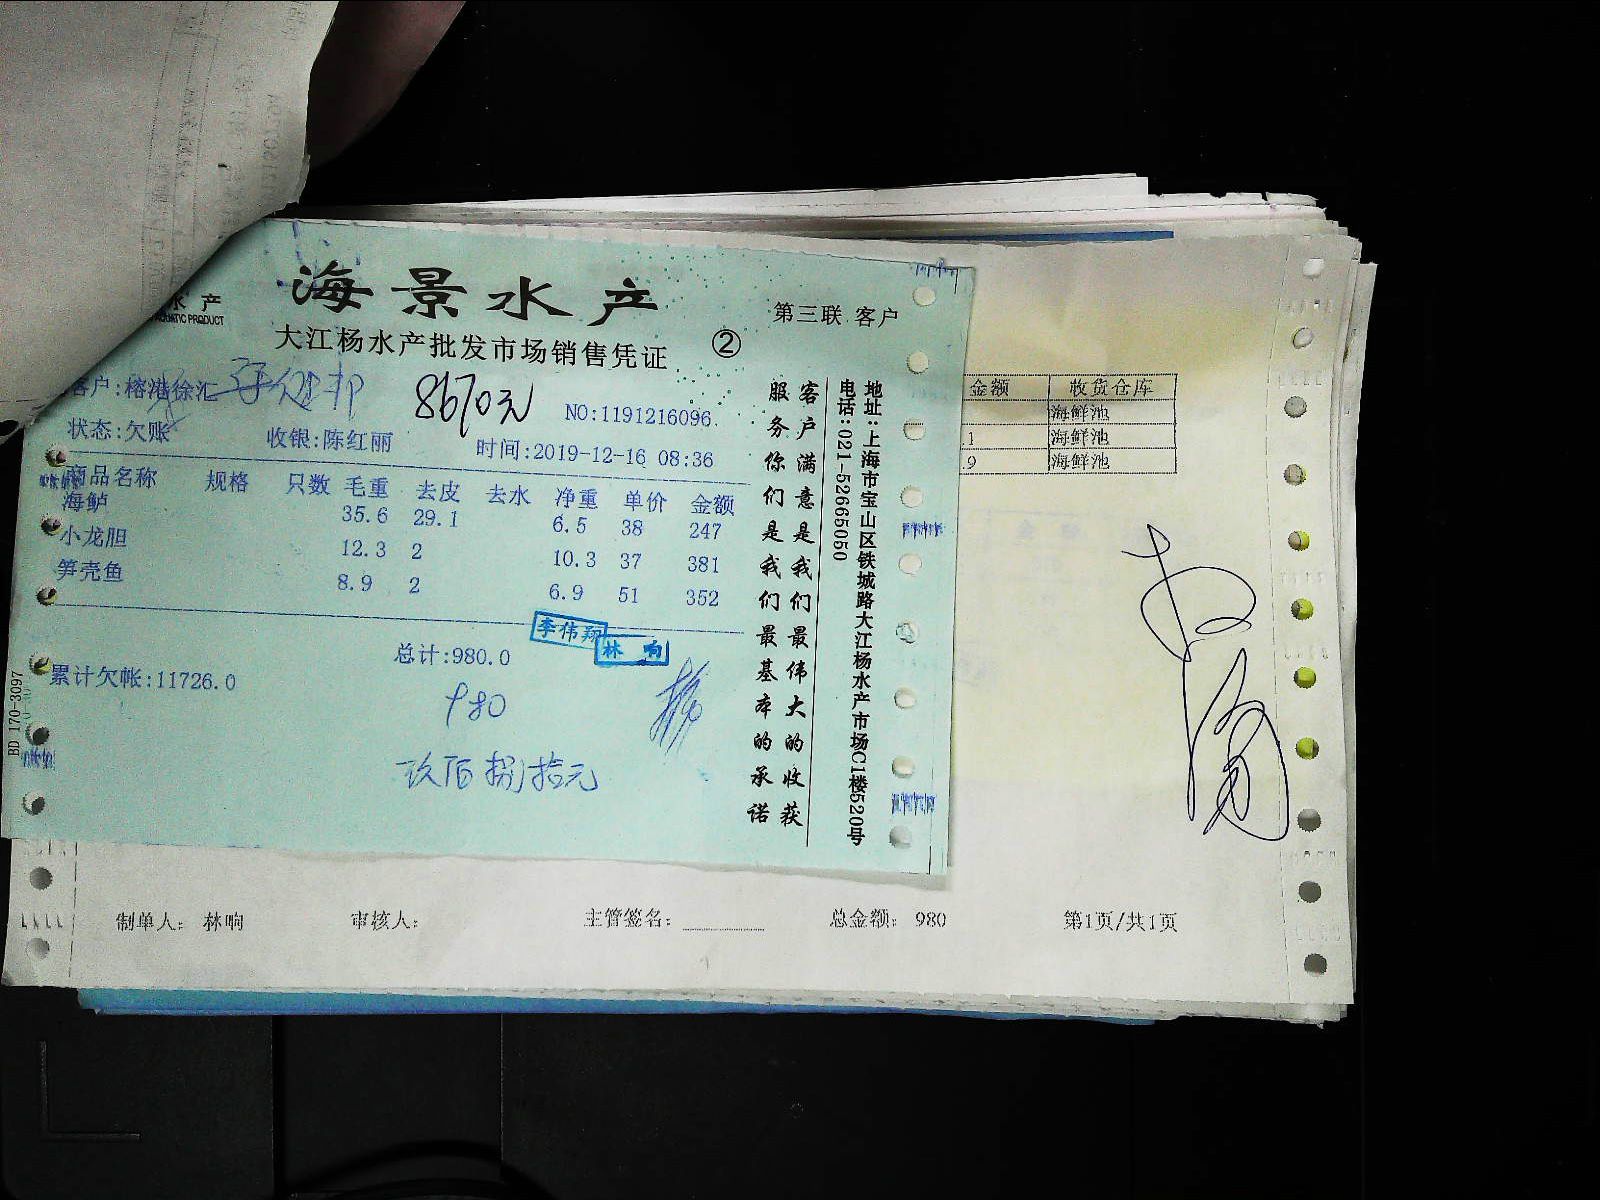 水产
AQUATIC PRODUCT
海景水产
第三联 客户
大江杨水产批发市场销售凭证
②
客户:榕港徐汇
8670元
NO:1191216096
状态:欠账
收银:陈红丽
时间:2019-12-16 08:36
商品名称 规格 只数 毛重 去皮 去水 净重 单价 金额
海鲈 35.6 29.1 6.5 38 247
小龙胆 12.3 2 10.3 37 381
笋壳鱼 8.9 2 6.9 51 352
李伟翔
林响
总计:980.0
累计欠帐:11726.0
980
玖佰捌拾元
BD 170-3097
客户满意是我们最伟大的收获
服务你们是我们最基本的承诺
地址:上海市宝山区铁城路大江杨水产市场C1楼520号
电话:021-52665050
金额 收货仓库
海鲜池
.1 海鲜池
.9 海鲜池
制单人: 林响 审核人: 主管签名: 总金额: 980 第1页/共1页